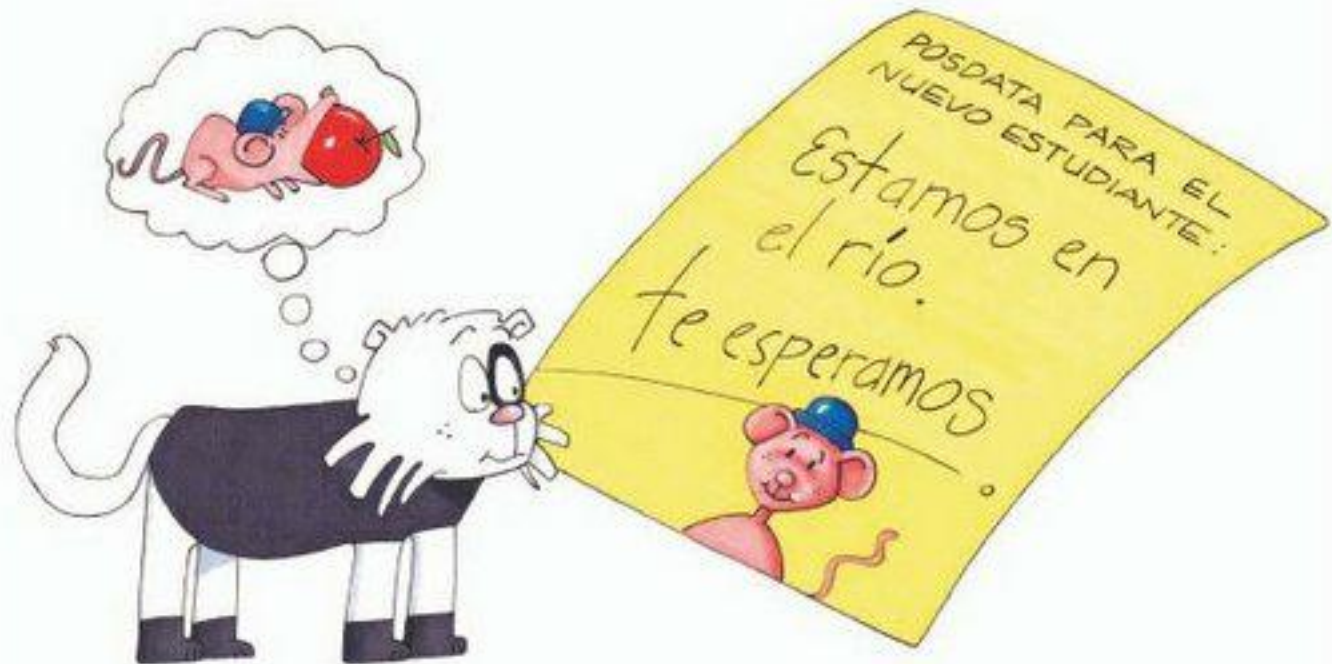 POSDATA PARA EL
NUEVO ESTUDIANTE:
Estamos en
el río.
te esperamos.